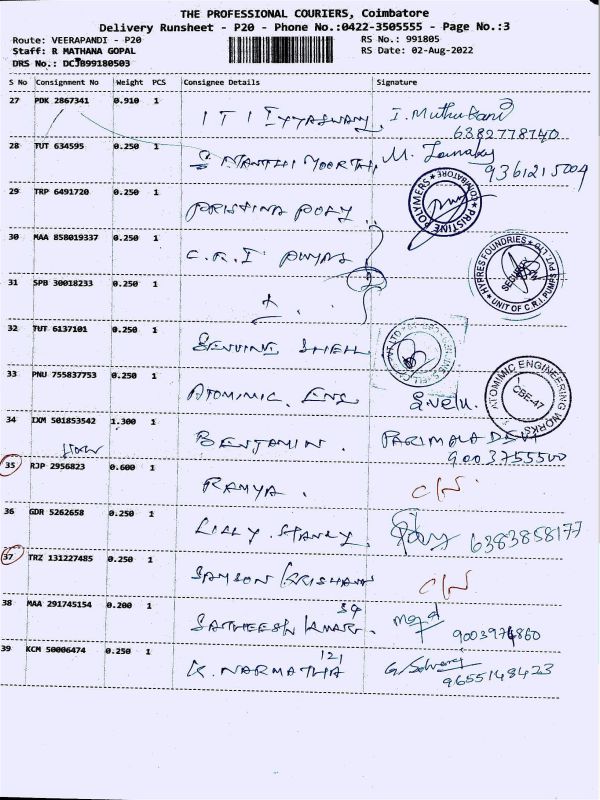 THE PROFESSIONAL COURIERS, Coimbatore
Delivery Runsheet - P20 - Phone No.:0422-3505555 - Page No.:3
Route: VEERAPANDI - P20 RS No.: 991805
Staff: R MATHANA GOPAL RS Date: 02-Aug-2022
DRS No.: DCJB99180503
S No Consignment No Weight PCS Consignee Details Signature
27 PDK 2867341 0.910 1 I. Muthu
6382778740
28 TUT 634595 0.250 1 M.
9361215004
29 TRP 6491720 0.250 1 PRISTINA POLY
PRISTINE POLYMERS COIMBATORE
30 MAA 858019337 0.250 1 C.R.I PUMPS
HYPRES FOUNDRIES UNIT OF C.R.I. PUMPS PVT LTD
SECURITY
31 SPB 30018233 0.250 1
32 TUT 6137101 0.250 1 SHELL
33 PNU 755837753 0.250 1 ATOMIMIC. ENG S.velu.
ATOMIMIC ENGINEERING WORKS
CBE-47
34 IXM 501853542 1.300 1 BENJAMIN. PARIMALA DEVI
9003755500
35 RJP 2956823 0.600 1 RAMYA. C/N
36 GDR 5262658 0.250 1 LILLY. STANLY. 6383858177
37 TRZ 131227485 0.250 1 SAMSON KRISHANS C/N
38 MAA 291745154 0.200 1 SATHEESH KUMAR.
39 KCM 50006474 0.250 1 K. NARMATHA 121 G. Selvaraj
9655148423